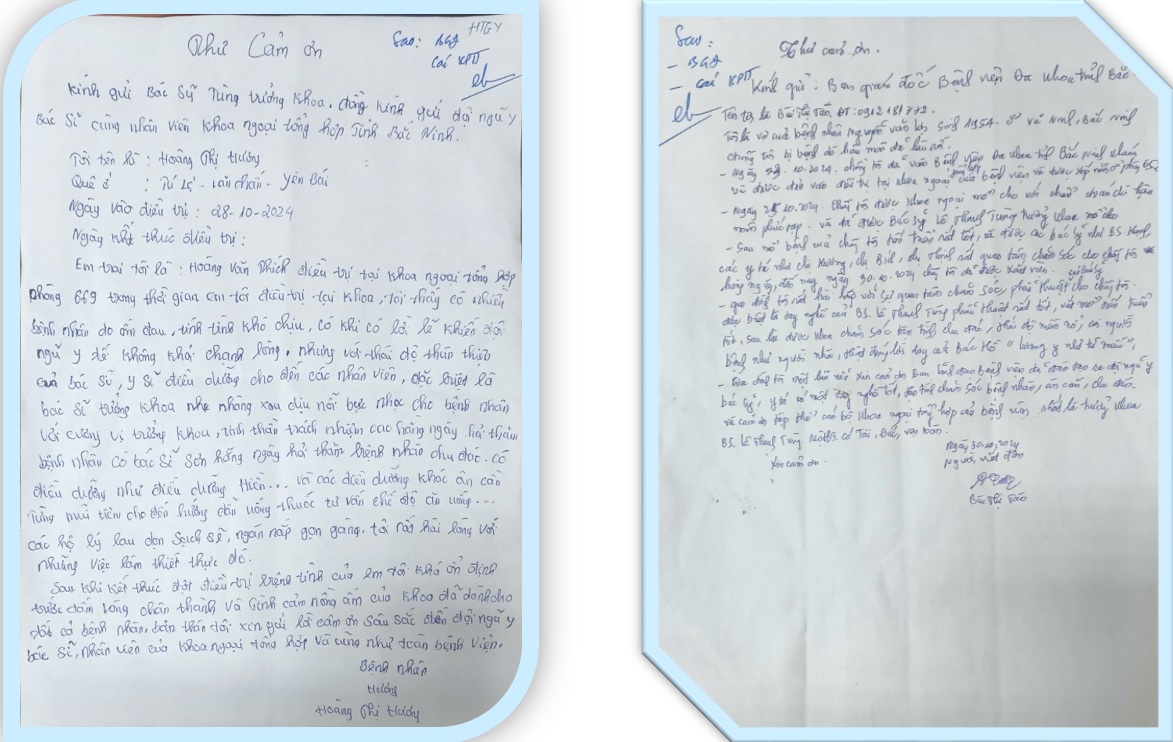 HTGY
Sao: BGĐ
Các KPTT
Thư Cảm ơn
Kính gửi Bác Sỹ Tùng trưởng Khoa, đồng kính gửi đội ngũ y
Bác Sĩ cùng nhân viên khoa ngoại tổng hợp Tỉnh Bắc Ninh.
Tôi tên là : Hoàng Thị Hương
Quê ở : Tú Lệ - Văn chấn - Yên Bái
Ngày vào điều trị : 28-10-2024
Ngày kết thúc điều trị :
Em trai tôi là : Hoàng Văn Thích điều trị tại khoa ngoại tổng hợp
phòng 669 trong thời gian em tôi điều trị tại khoa, tôi thấy có nhiều
bệnh nhân do ốm đau, tính tình khó chịu, có khi có lời lẽ khiến đội
ngũ y tế không khỏi chạnh lòng, nhưng với thái độ thân thiện
của bác sĩ, y sĩ điều dưỡng cho đến các nhân viên, đặc biệt là
bác sĩ trưởng khoa nhẹ nhàng xoa dịu nỗi bực nhọc cho bệnh nhân
với cương vị trưởng khoa, tinh thần trách nhiệm cao hàng ngày hỏi thăm
bệnh nhân có bác sĩ Sơn hằng ngày hỏi thăm bệnh nhân chu đáo. có
điều dưỡng như điều dưỡng Hiền... và các điều dưỡng khác ân cần
từng mũi tiêm cho đến hướng dẫn uống thuốc tư vấn chế độ ăn uống...
các hộ lý lau dọn sạch sẽ, ngăn nắp gọn gàng. tôi rất hài lòng với
những việc làm thiết thực đó.
Sau khi kết thúc đợt điều trị bệnh tình của em tôi khá ổn định
trước tấm lòng chân thành và tình cảm nồng ấm của khoa đã dành cho
tất cả bệnh nhân, bản thân tôi xin gửi lời cảm ơn sâu sắc đến đội ngũ y
bác sĩ, nhân viên của khoa ngoại tổng hợp và cũng như toàn bệnh viện.
Bệnh nhân
Hương
Hoàng Thị Hương
Sao:
- BGĐ
- Các KPTT
Thư cảm ơn.
Kính gửi: Ban giám đốc Bệnh viện Đa khoa tỉnh Bắc
Tên tôi là Bùi Thị Táo, ĐT: 0912181772.
Tôi là vợ của bệnh nhân Nguyễn văn sinh 1954. Bắc Ninh
chồng tôi bị bệnh
- Ngày 10-2024. chồng tôi đã vào Bệnh viện Đa khoa tỉnh Bắc Ninh khám
và được đưa vào điều trị tại khoa ngoại của bệnh viện và được xếp nằm ở phòng
- Ngày 10.2024. Chồng tôi được khoa ngoại mổ cho với chẩn đoán
phức tạp. và đã được Bác sỹ Lê Thanh Tùng trưởng khoa mổ cho
- Sau mổ bệnh của chồng tôi tiến triển rất tốt, và được các bác sỹ như BS.
các y tá như chị Hương, chị rất quan tâm chăm sóc cho chồng tôi
hàng ngày, đến nay ngày 30.10.2024 chồng tôi đã được xuất viện.
- gia đình tôi rất hài lòng với sự quan tâm chăm sóc, phẫu thuật cho chồng tôi.
đặc biệt là tay nghề của BS. Lê Thanh Tùng phẫu thuật rất tốt, vết mổ
tốt, sau lại được khoa chăm sóc tận tình chu đáo, thái độ niềm nở, coi người
bệnh như người nhà, thật đúng lời dạy của Bác Hồ "Lương y như từ mẫu".
- Gia đình tôi một lần nữa xin cảm ơn Ban lãnh đạo bệnh viện đã đào tạo ra đội ngũ y
bác sỹ, y tá có một tay nghề tốt, tận tình chăm sóc bệnh nhân, ân cần, chu đáo.
và cảm ơn tập thể cán bộ khoa ngoại tổng hợp của bệnh viện nhất là trưởng khoa
BS. Lê Thanh Tùng một BS. có Tài, Đức, vẹn toàn.
Xin cảm ơn.
Ngày 30.10.2024
Người viết đơn
Bùi Thị Táo